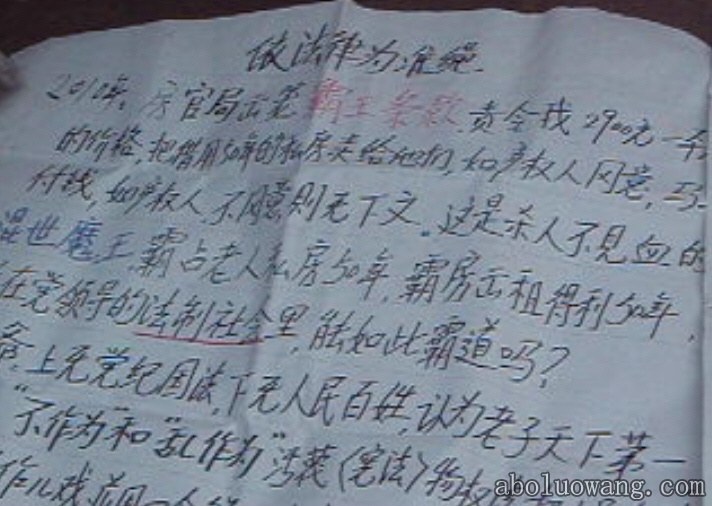 依法律为准绳
2010年,房官局出笼霸王条款,责令我2900元一
的价格,把借用50年的私房卖给他们,如产权人同意,马
付钱,如产权人不同意则无下文。这是杀人不见血的
混世魔王,霸占老人私房50年,霸房出租得利50年,
在党领导的法制社会里,能如此霸道吗?
上无党纪国法,下无人民百姓,认为老子天下第一
"不作为"和"乱作为"《宪法》物权
作儿戏
aboluowang.com